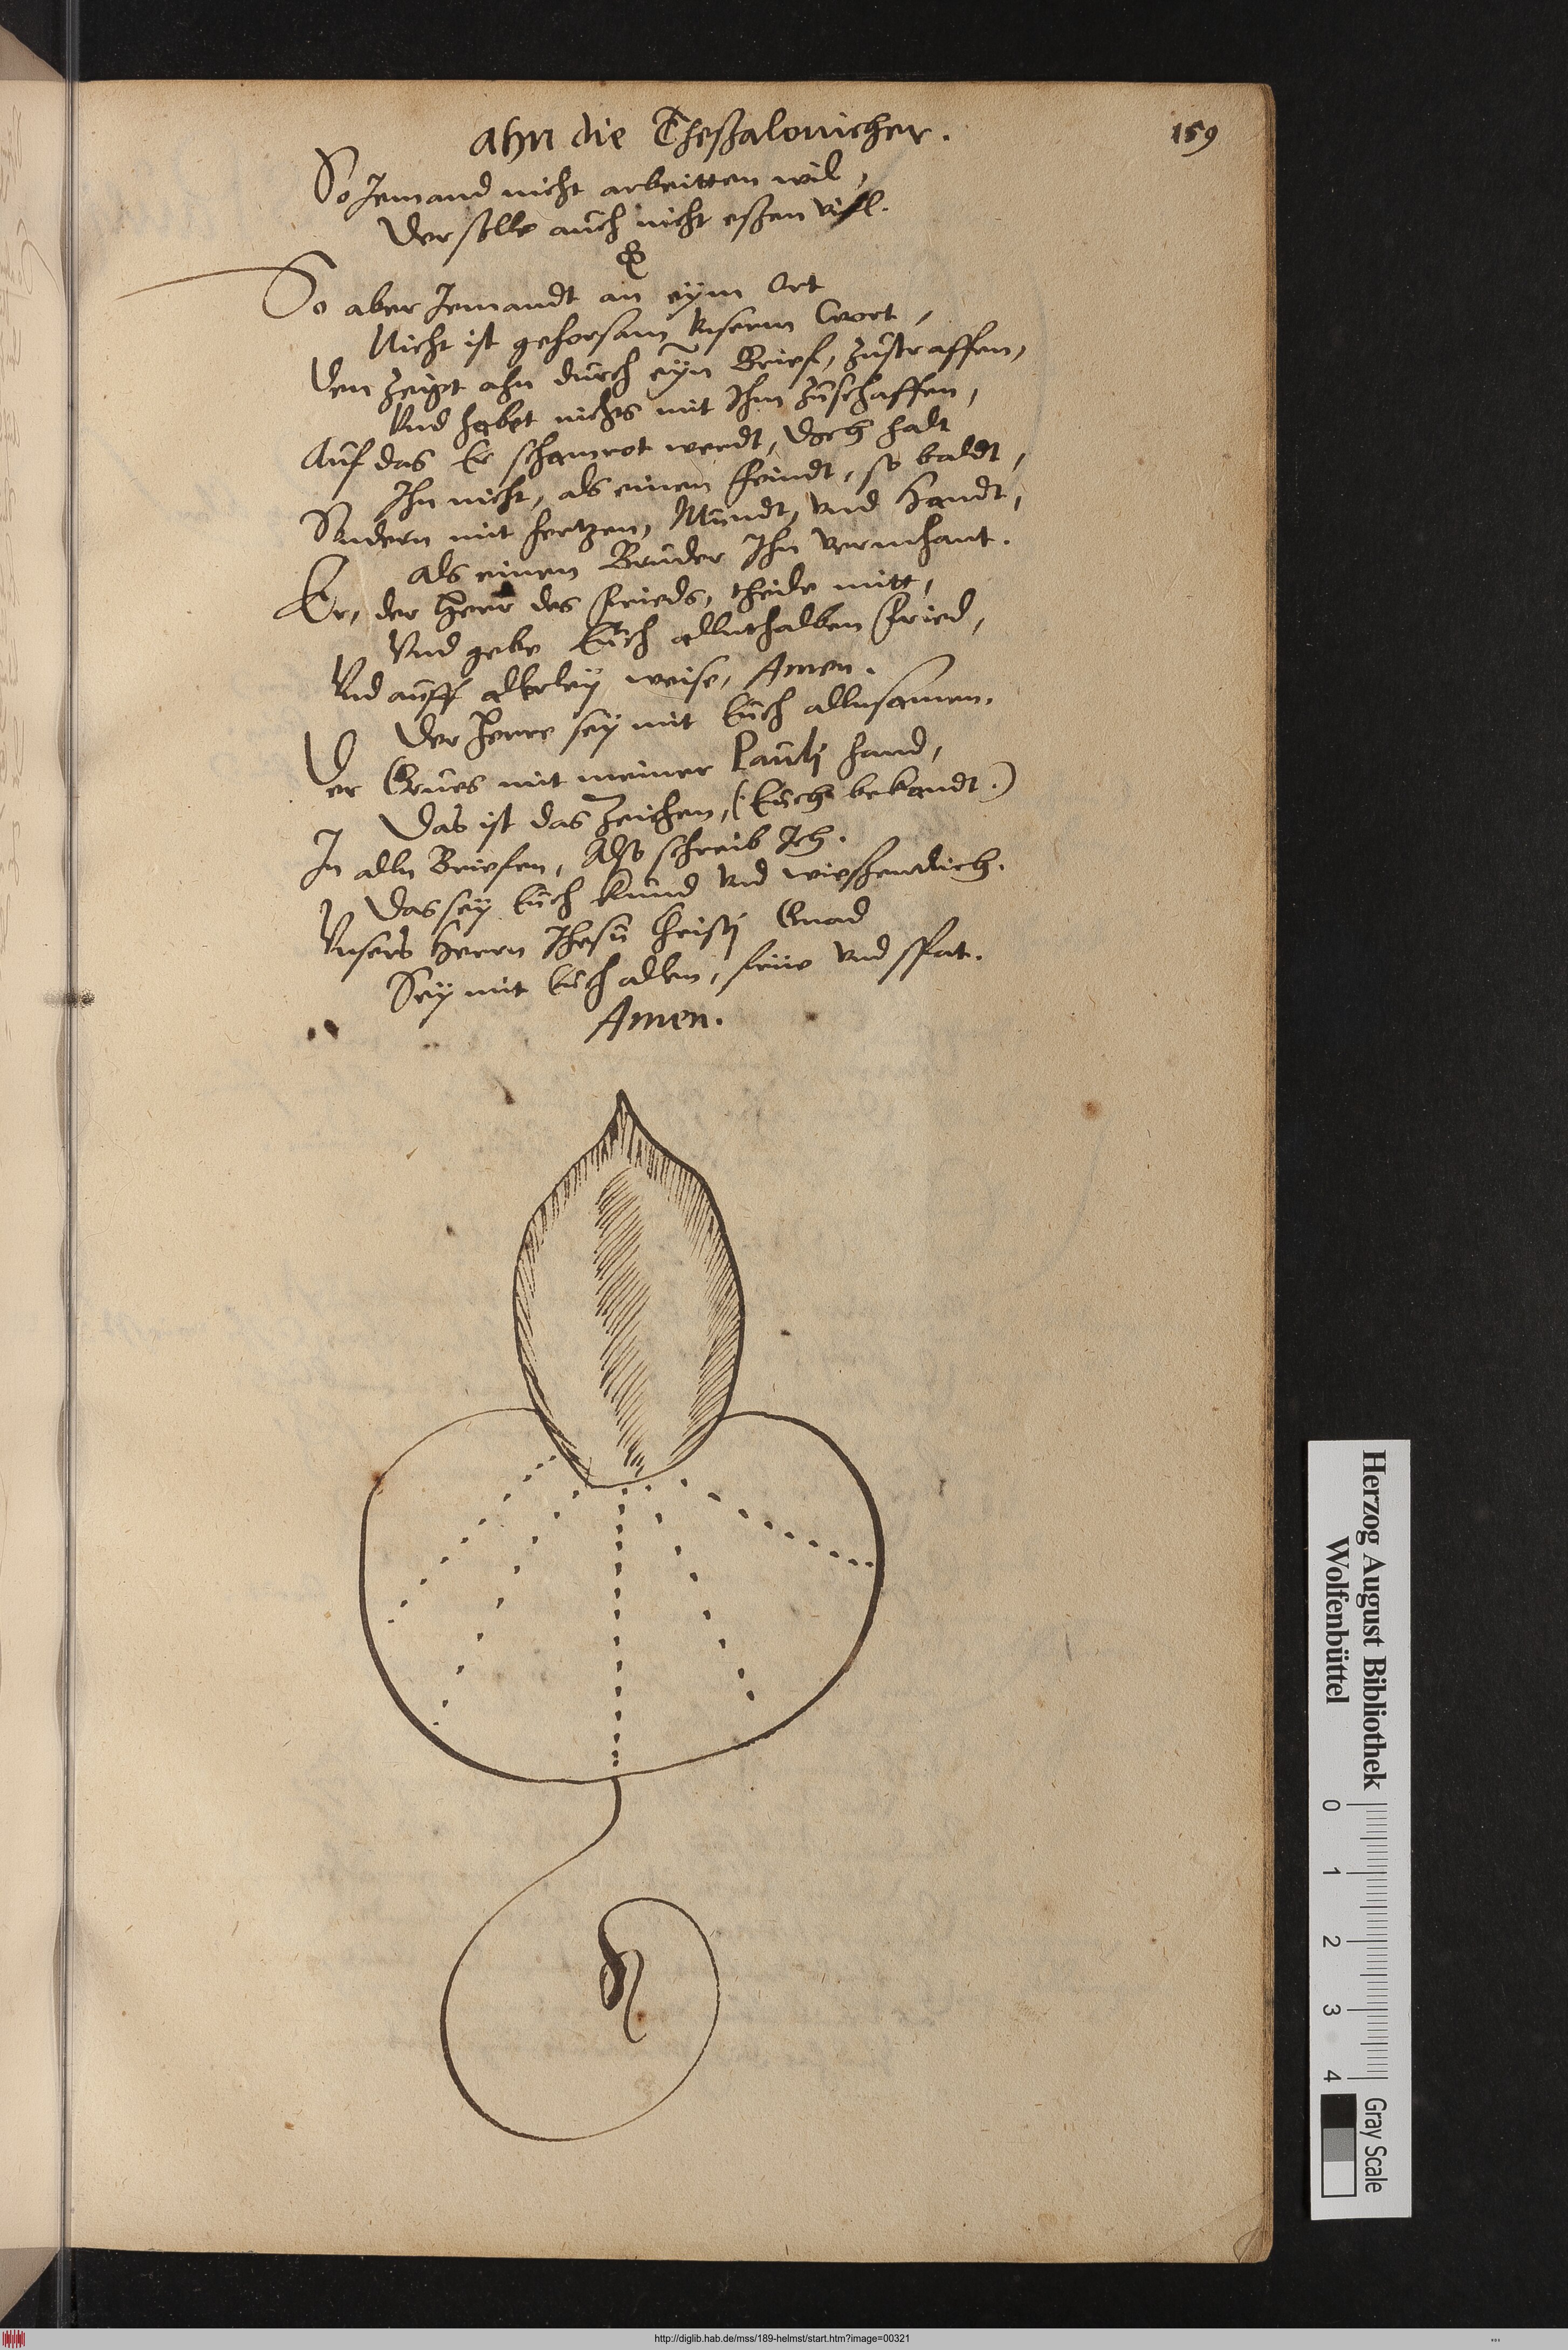 ahn die Theßalonicher.
159
So Jemand nicht arbeitten wil,
Der solle auch nicht eßen viel.
So aber Jemandt an eym Ort
Nicht ist gehorsam Vnserm Wort,
Den zeigt ahn durch eyn Brief, zustraffen,
Vnd habet nichts mit Ihm zuschaffen,
Auf das Er schamrot werdt, Doch halt
Ihn nicht, als einen feindt, so baldt,
Sondern mit hertzen, Mundt, vnd Handt,
als einen Bruder Ihn vermhant.
Er, der Herr des frieds, theile mitt,
Vnd gebe Euch allnthalben fried,
Vnd auff allerley weise, Amen.
Der Herre sey mit Euch allnsamen.
Der Grues mit meiner Paulj hand,
Das ist das Zeichen, (Euch bekandt.)
In alln Briefen, Also schreib Ich.
Das sey Euch kund vnd wießendlich.
Vnsers Herrn Jhesu Christj Gnad
Sey mit Euch allen, früe vnd spat.
Amen.
Herzog August Bibliothek
Wolfenbüttel
0 1 2 3 4
Gray Scale
http://diglib.hab.de/mss/189-helmst/start.htm?image=00321